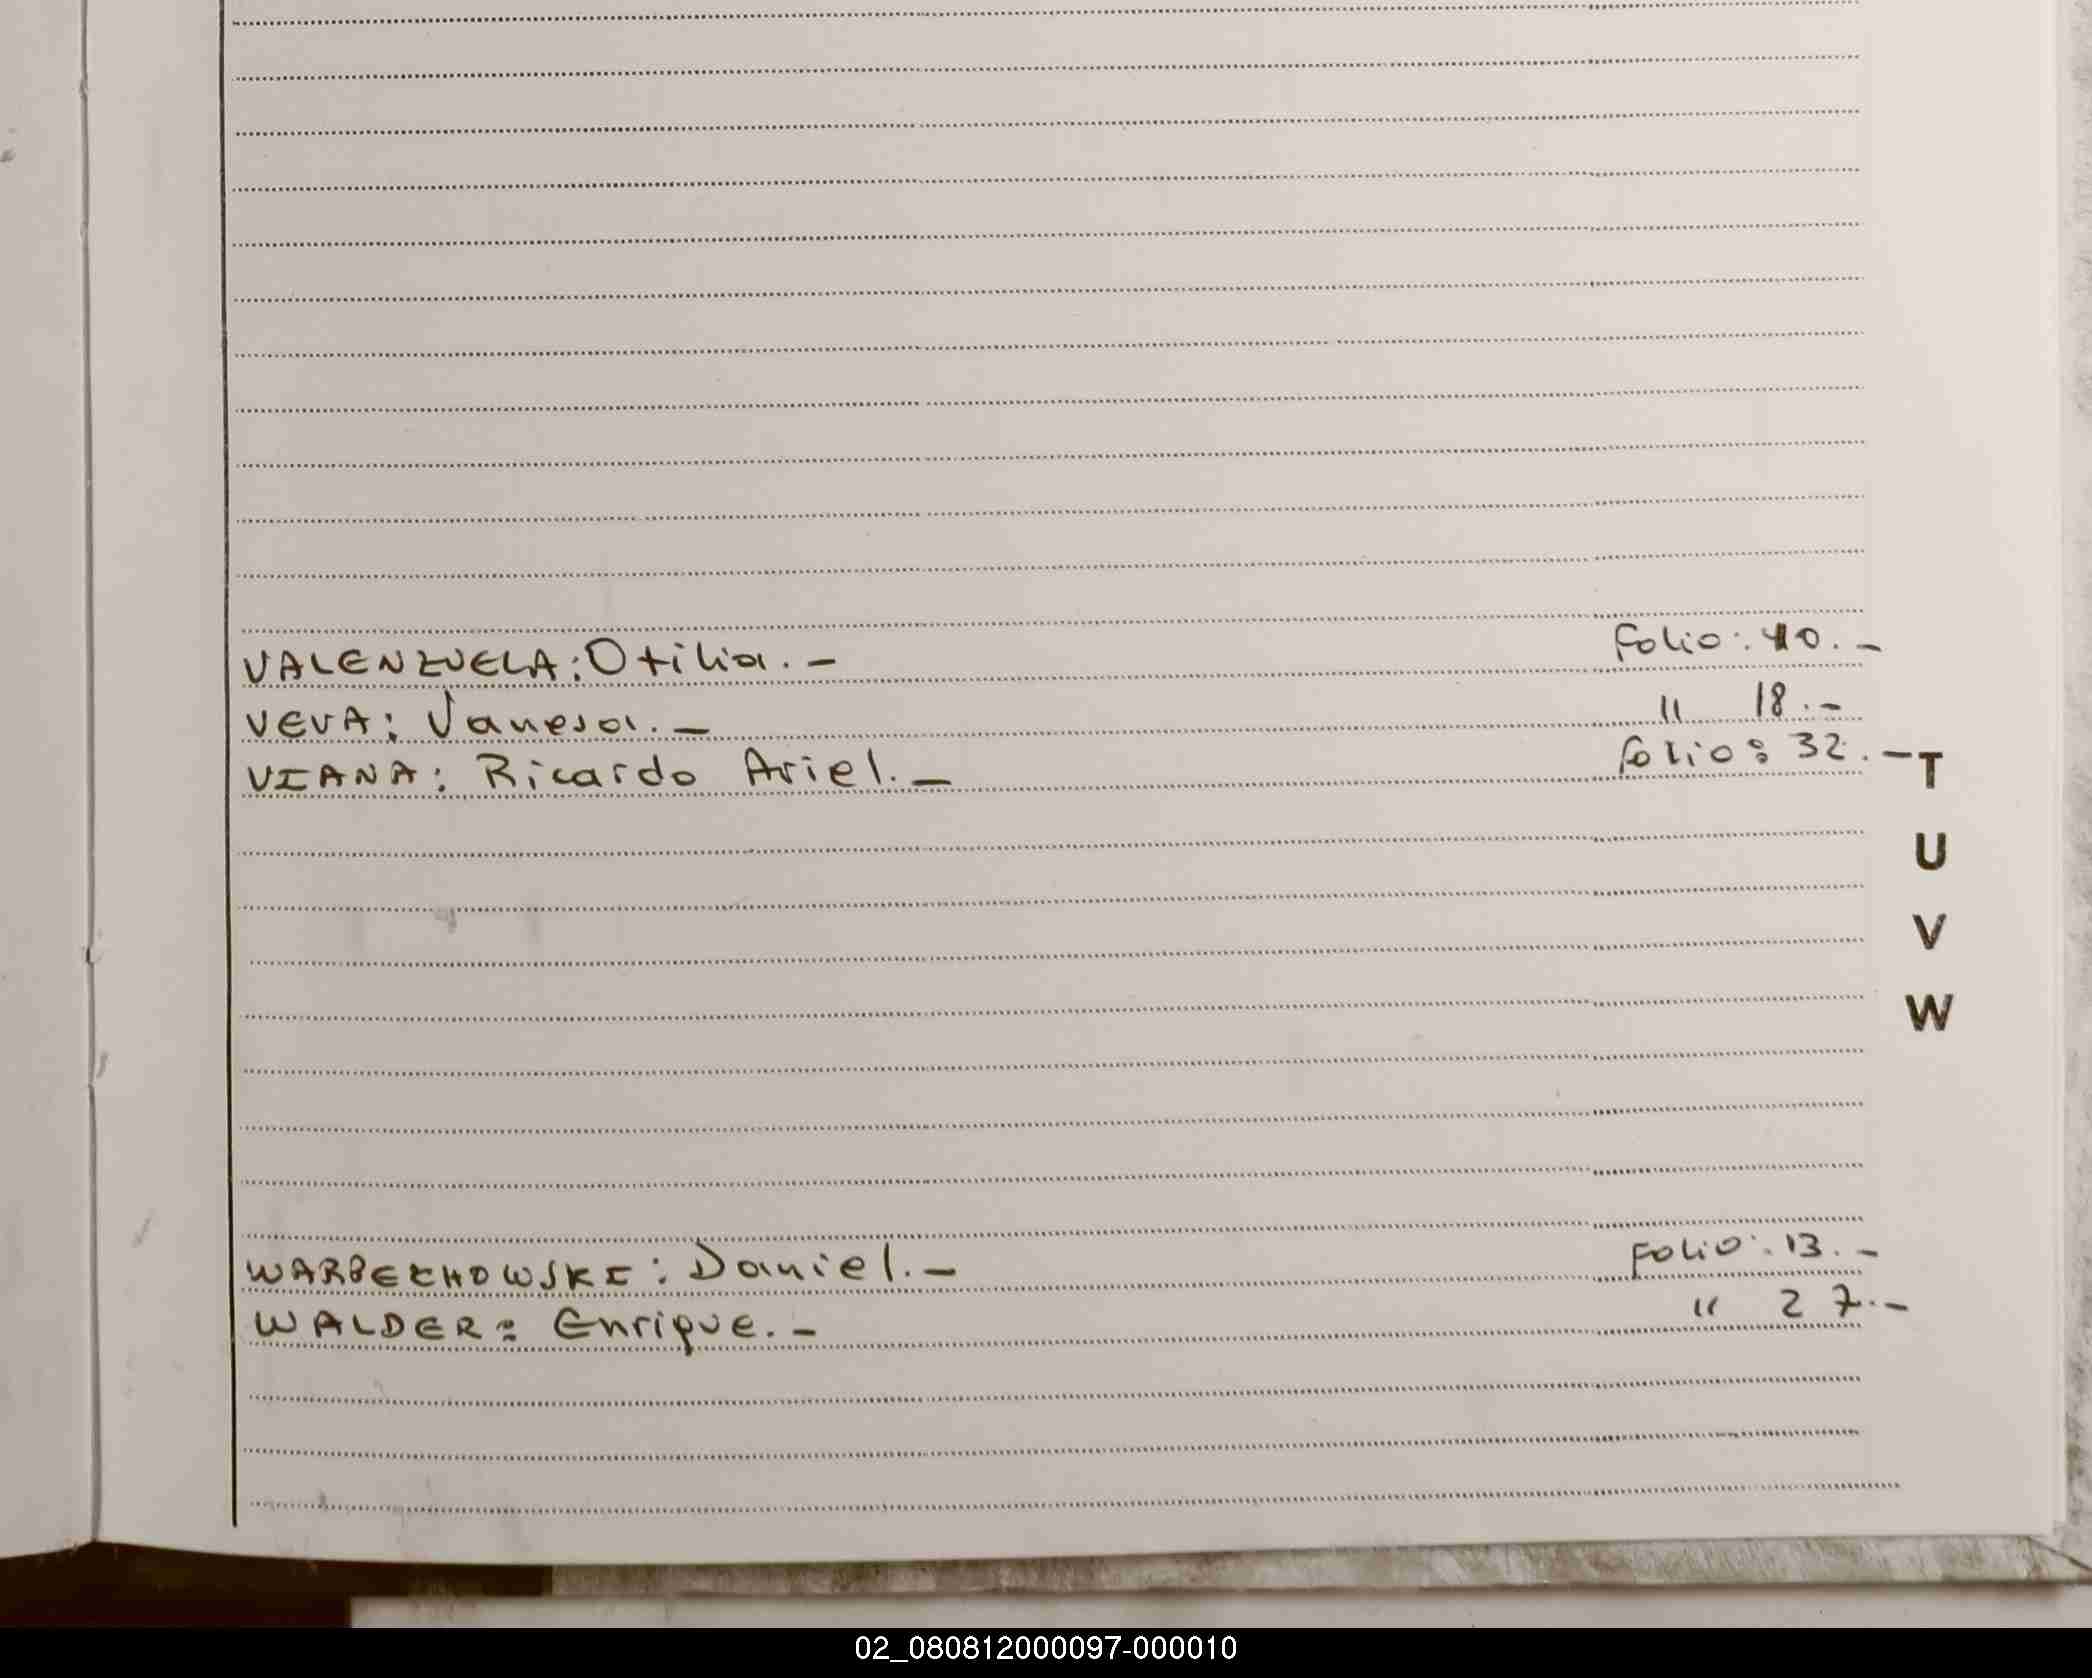 VALENZUELA: Otilia. — Folio: 40. —
VEVA: Vanesa. — " 18. —
VIANA: Ricardo Ariel. — folio: 32. —
T
U
V
W
WARBECHOWSKI: Daniel. — Folio: 13. —
WALDER: Enrique. — " 27. —
02_080812000097-000010